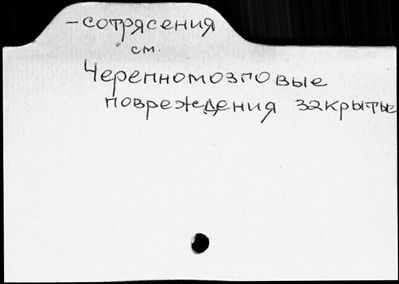 -сотрясения
см.
Черепномозговые
повреждения закрытые